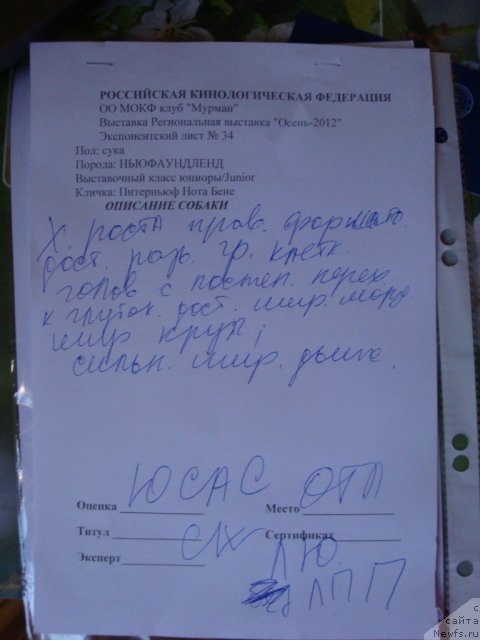 РОССИЙСКАЯ КИНОЛОГИЧЕСКАЯ ФЕДЕРАЦИЯ
ОО МОКФ клуб "Мурман"
Выставка Региональная выставка "Осень-2012"
Экспонентский лист № 34
Пол: сука
Порода: НЬЮФАУНДЛЕНД
Выставочный класс юниоры/Junior
Кличка: Питерньюф Нота Бене
ОПИСАНИЕ СОБАКИ
Х. роста прав. формата
дост. разв. гр. клетк
голов с постеп. перех
к глуток. дост. шир. морд
шир. круп,
сильн. шир.
Оценка ЮСАС Место ОТЛ.
Титул СК Сертификат ЛЮ.
Эксперт ЛПП
с
сайта
Newfs.ru